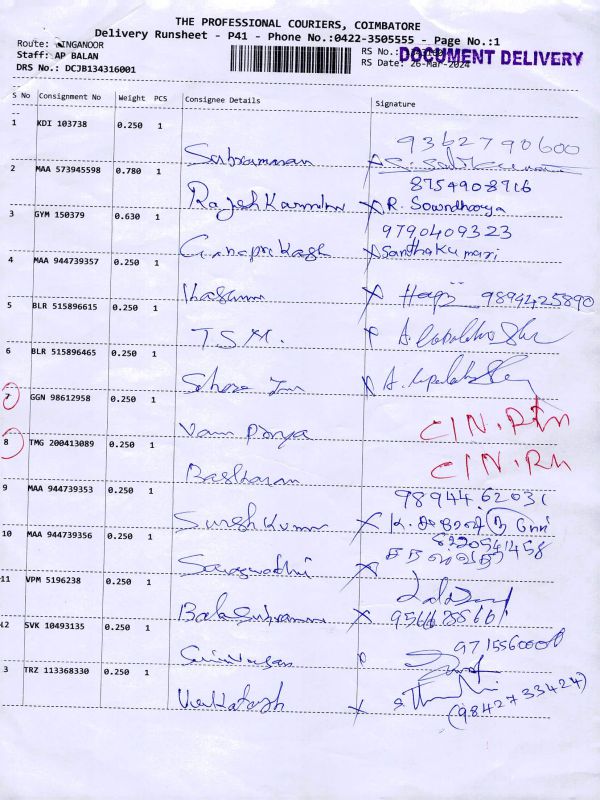 THE PROFESSIONAL COURIERS, COIMBATORE
Delivery Runsheet - P41 - Phone No.:0422-3505555 - Page No.:1
Route: SINGANOOR
Staff: AP BALAN
DRS No.: DCJB134316001
RS No.:
RS Date: 26-Mar-2024
DOCUMENT DELIVERY
S No Consignment No Weight PCS Consignee Details Signature
1 KDI 103738 0.250 1
9362790600
Subramanian
2 MAA 573945598 0.780 1
8754908716
RajeshKannan R. Sowndharya
3 GYM 150379 0.630 1
9790409323
Gnanaprakash Santhakumari
4 MAA 944739357 0.250 1
9894425890
5 BLR 515896615 0.250 1
T.S.M.
6 BLR 515896465 0.250 1
7 GGN 98612958 0.250 1
Vani Priya C/N.Rtn
8 TMG 200413089 0.250 1
Baskaran C/N.Rtn
9 MAA 944739353 0.250 1
9894462031
Sureshkumar
10 MAA 944739356 0.250 1
8220541458
Saraswathi சரஸ்வதி
11 VPM 5196238 0.250 1
Balasubramani
12 SVK 10493135 0.250 1
9715560008
Srinivasan
3 TRZ 113368330 0.250 1
Venkatesh (9842733424)